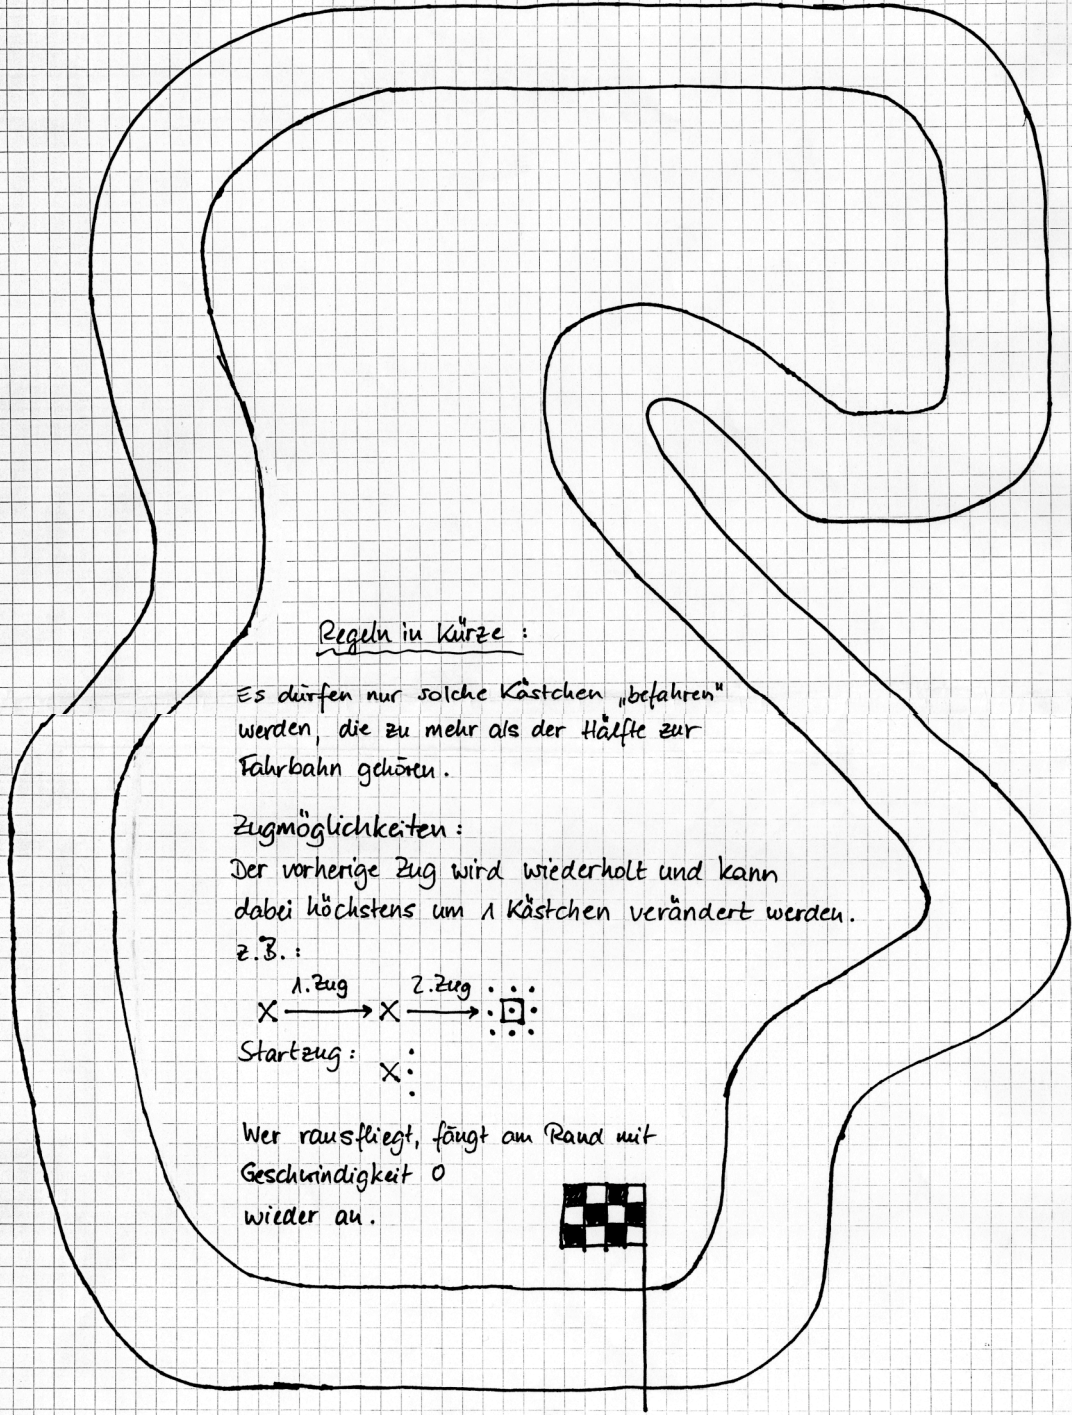 Regeln in Kürze :
Es dürfen nur solche Kästchen „befahren“
werden, die zu mehr als der Hälfte zur
Fahrbahn gehören.
Zugmöglichkeiten :
Der vorherige Zug wird wiederholt und kann
dabei höchstens um 1 Kästchen verändert werden.
z.B. :
1. Zug 2. Zug
Startzug :
Wer rausfliegt, fängt am Rand mit
Geschwindigkeit 0
wieder an.